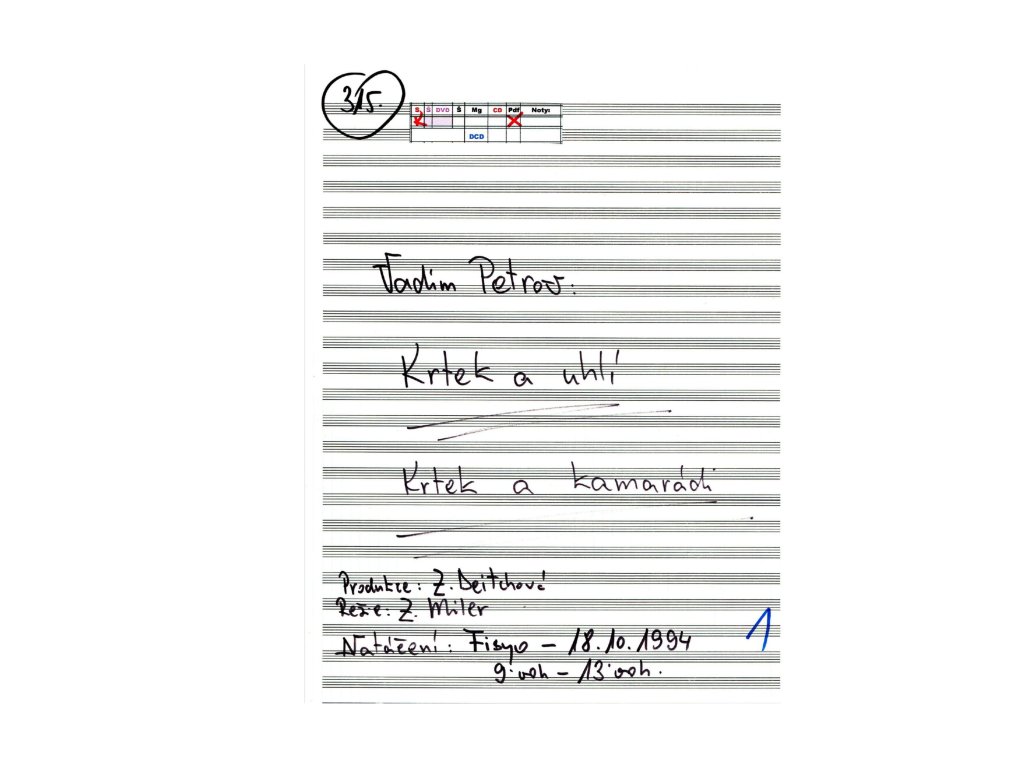 315.
S Š DVO Š Mg CD Pdf Noty:
DCD
Vadim Petrov:
Krtek a uhlí
Krtek a kamarádi
Produkce: Z. Deitchová
Režie: Z. Miler
Natáčení: Fisyo - 18.10.1994
1
9:ooh - 13:ooh.